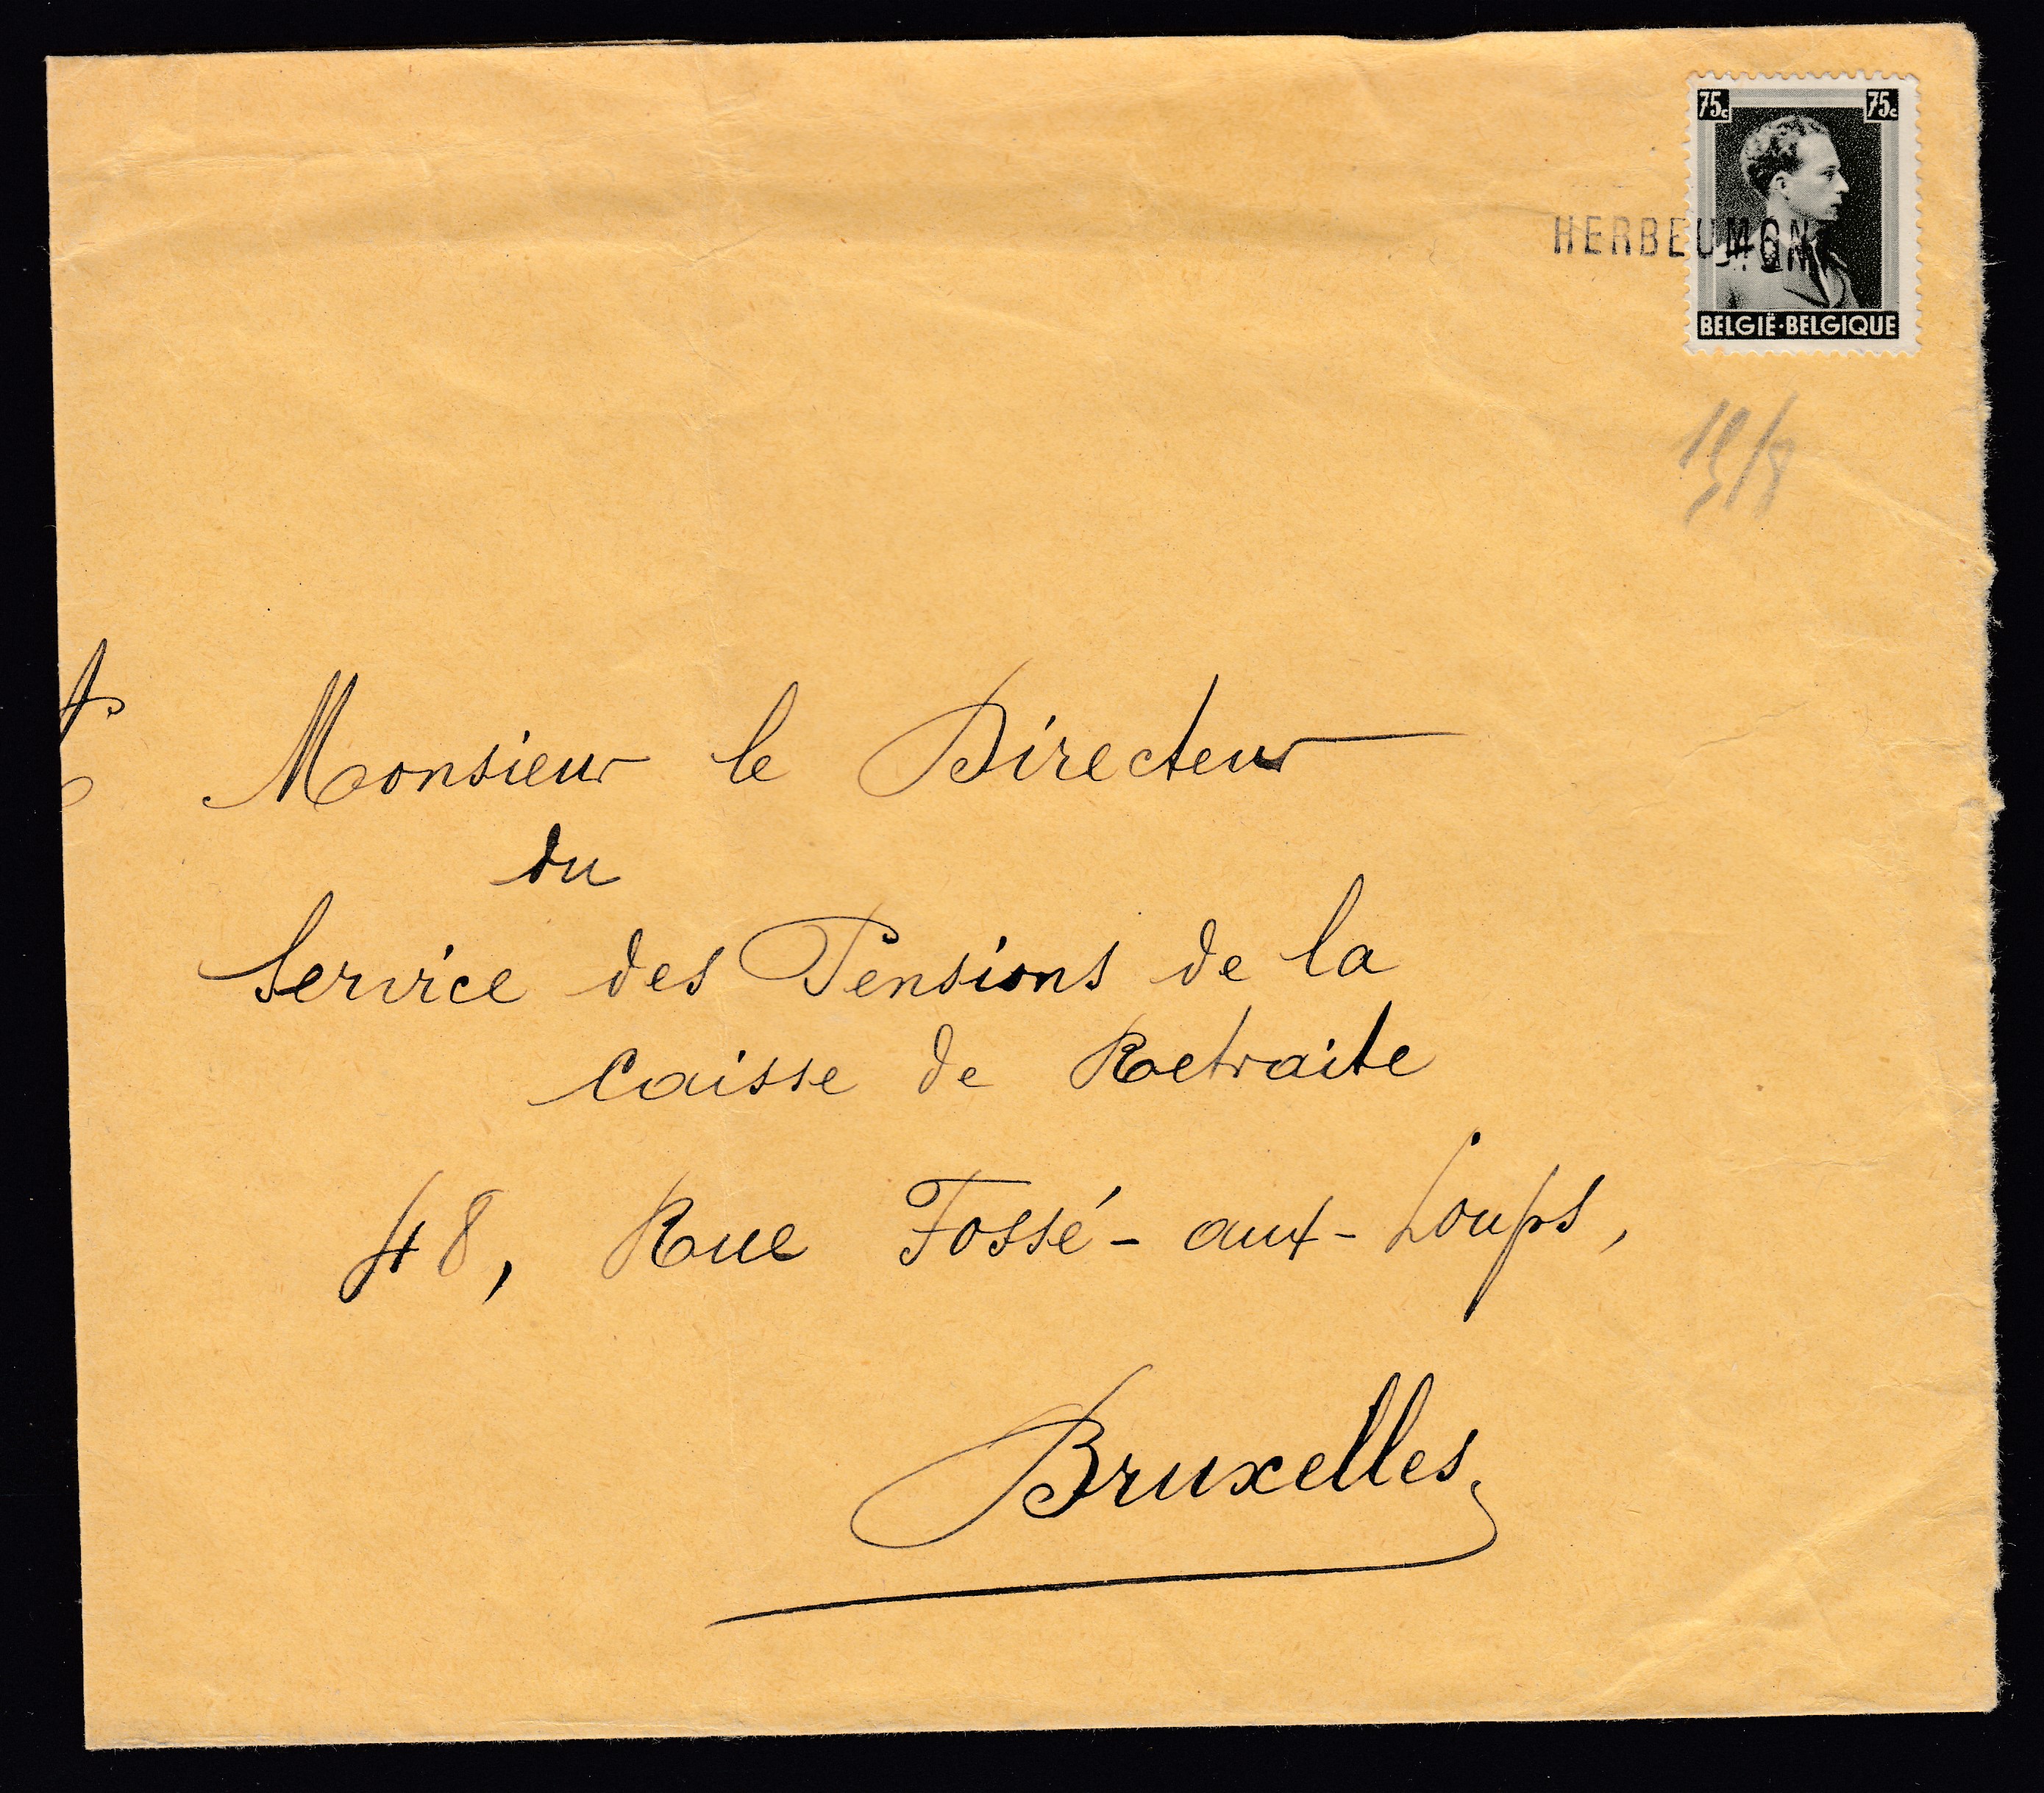 75c 75c
HERBEUMONT
BELGIË·BELGIQUE
Monsieur le Directeur
du
Service des Pensions de la
Caisse de Retraite
48, Rue Fossé-aux-Loups,
Bruxelles